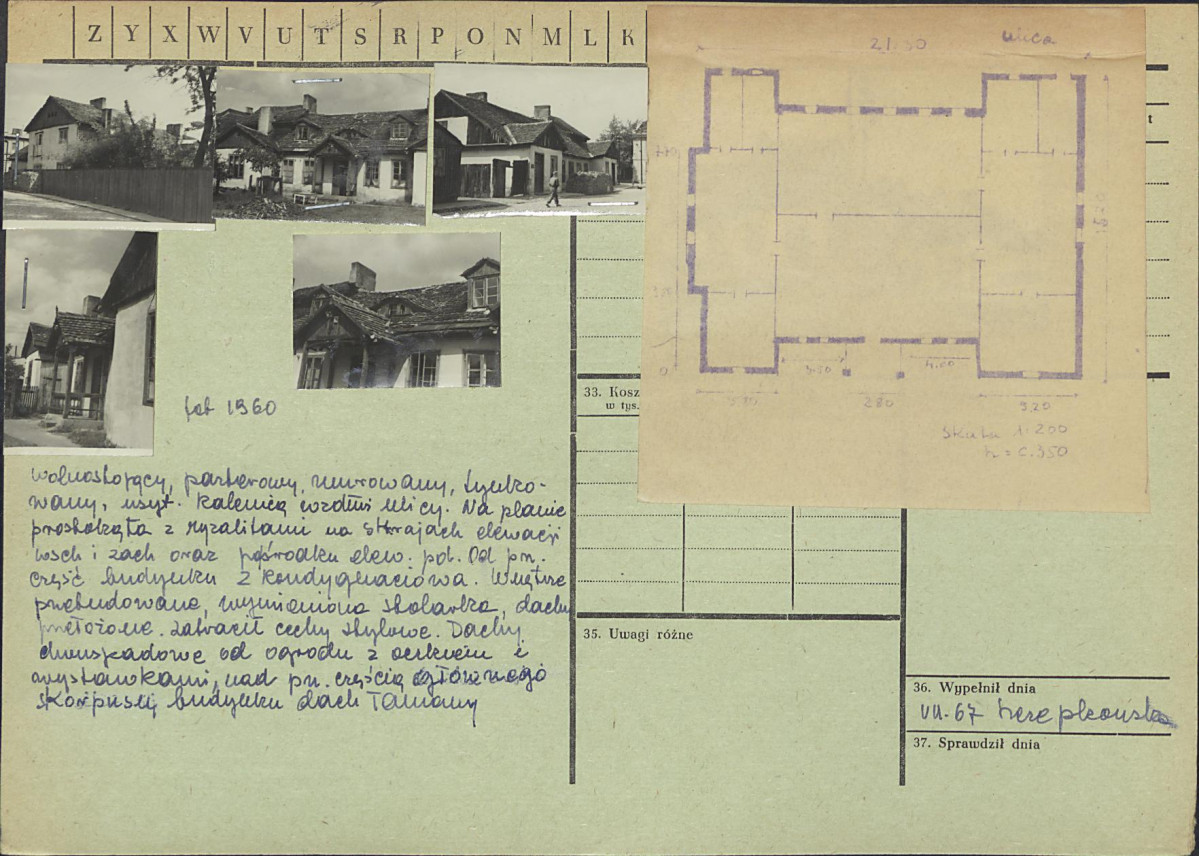 Z Y X W V U T S R P O N M L K
21.50 ulica
t
fot 1960
33. Kosz
w tys.
3.50 4.00
280 5.20
skala 1:200
h = c. 350
wolnostojący, parterowy, murowany, tynko-
wany, usyt. kalenicą wzdłuż ulicy. Na planie
prostokąta z ryzalitami na skrajach elewacji
wsch i zach oraz pośrodku elew. płd. Od pn.
część budynku 2 kondygnaciowa. Wnętrze
przebudowane, wymieniona stolarka, dachy
przełożone. Zatracił cechy stylowe. Dachy
dwuspadowe od ogrodu z
wystawkami, nad pn. częścią głównego
budynku dach łamany
35. Uwagi różne
36. Wypełnił dnia
VII.67
37. Sprawdził dnia